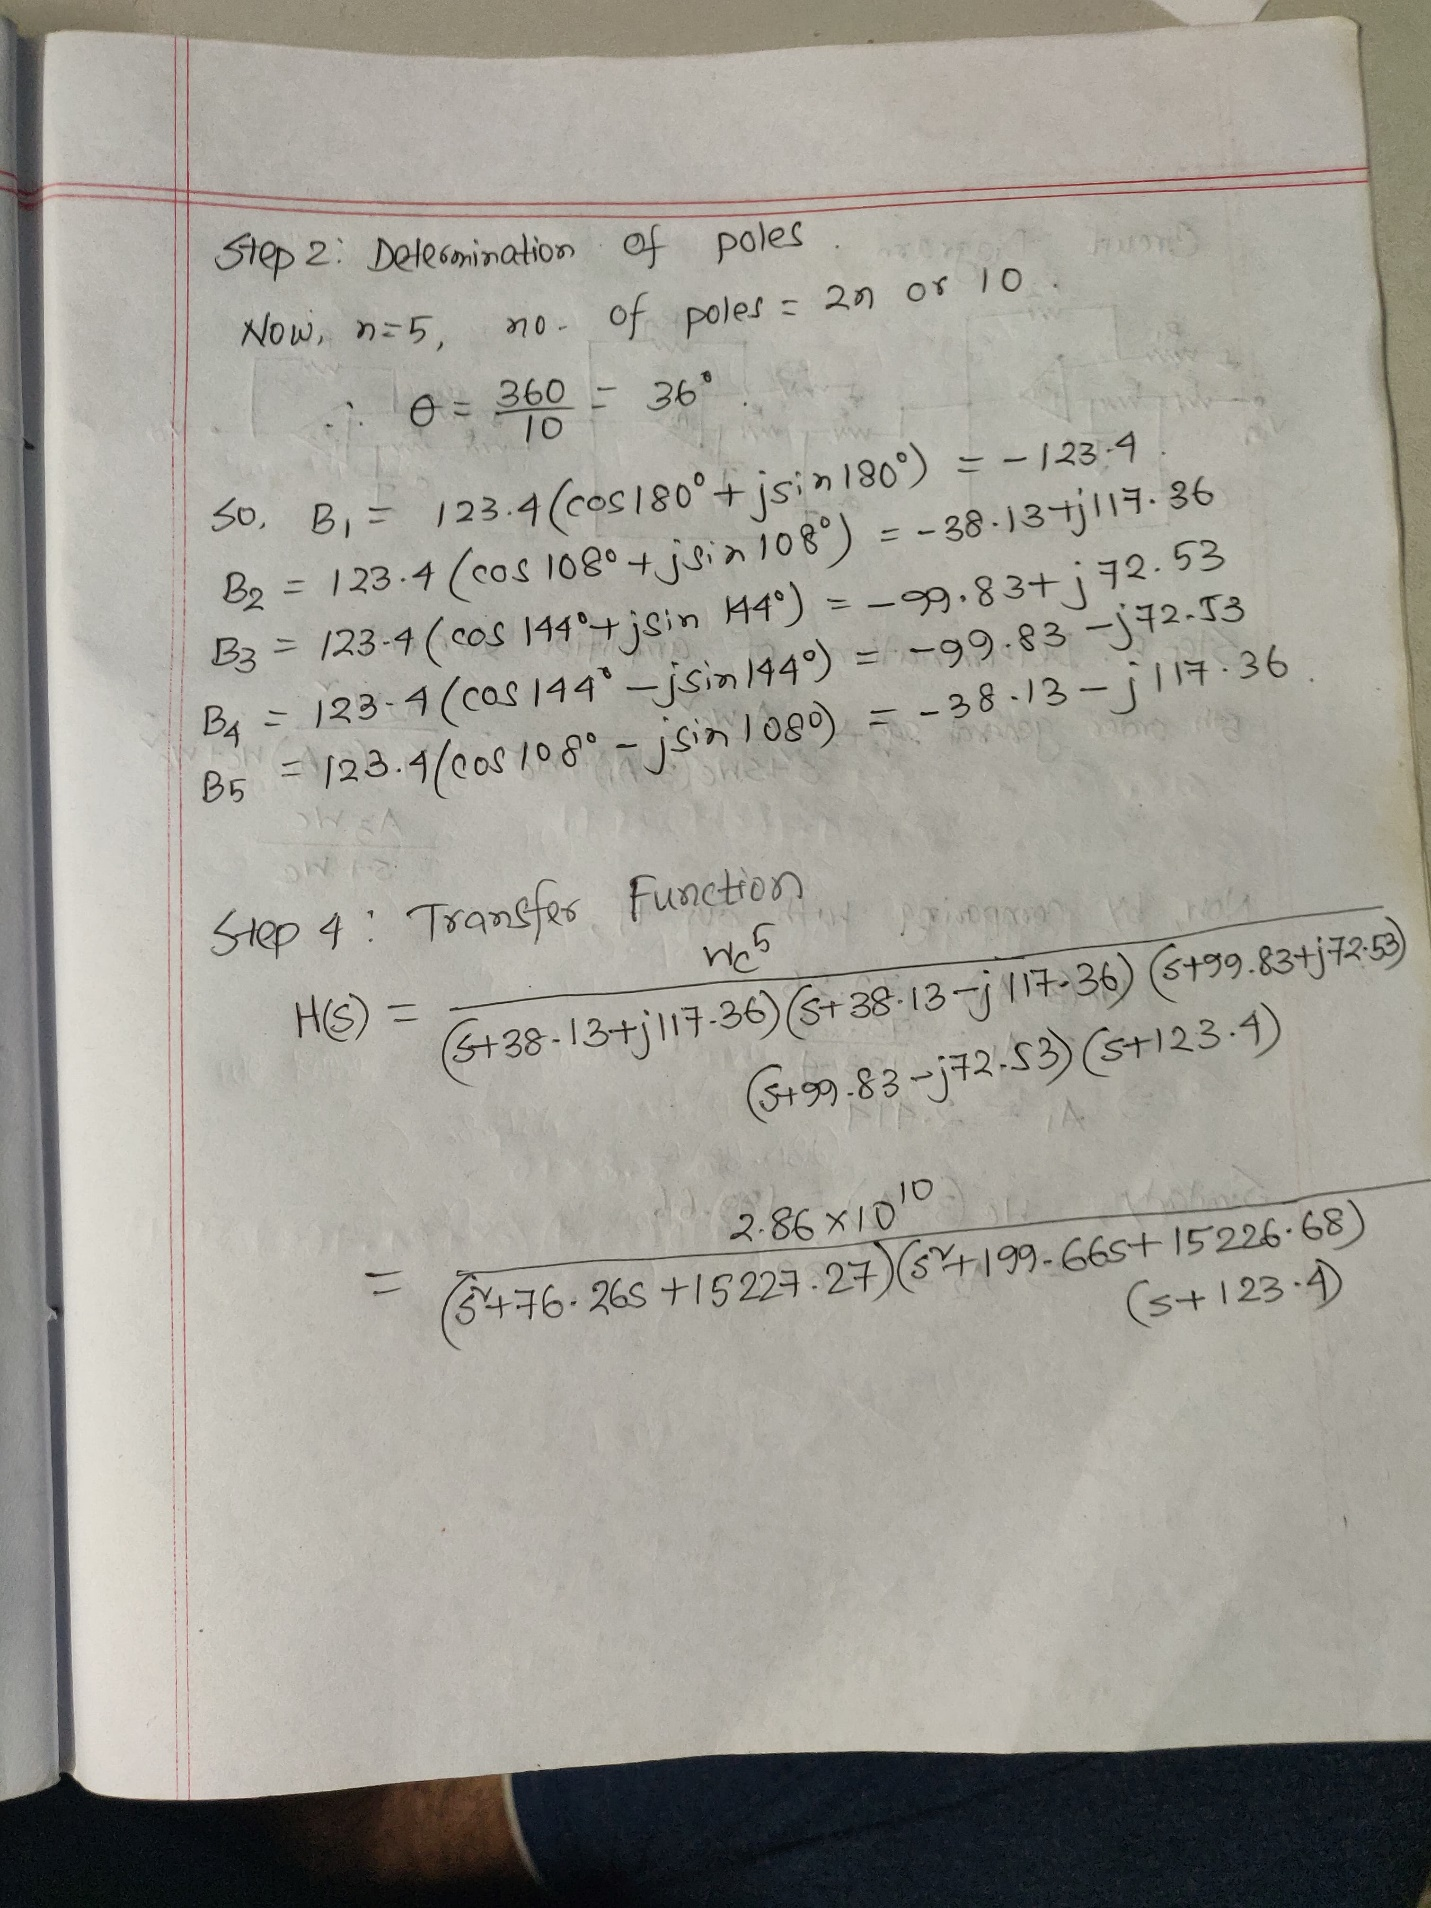 Step 2: Determination of poles.
Now, n=5, no. of poles = 2n or 10.
∴ θ = 360/10 = 36°.
So, B1 = 123.4(cos180° + jsin180°) = -123.4.
B2 = 123.4(cos 108° + jsin 108°) = -38.13+j117.36
B3 = 123.4(cos 144° + jsin 144°) = -99.83+j72.53
B4 = 123.4(cos 144° - jsin144°) = -99.83-j72.53
B5 = 123.4(cos 108° - jsin 108°) = -38.13-j117.36.
Step 4: Transfer Function
Wc^5
H(S) = (s+38.13+j117.36)(s+38.13-j117.36)(s+99.83+j72.53)
(s+99.83-j72.53)(s+123.4)
2.86×10^10
= (s²+76.26s+15227.27)(s²+199.66s+15226.68)
(s+123.4)